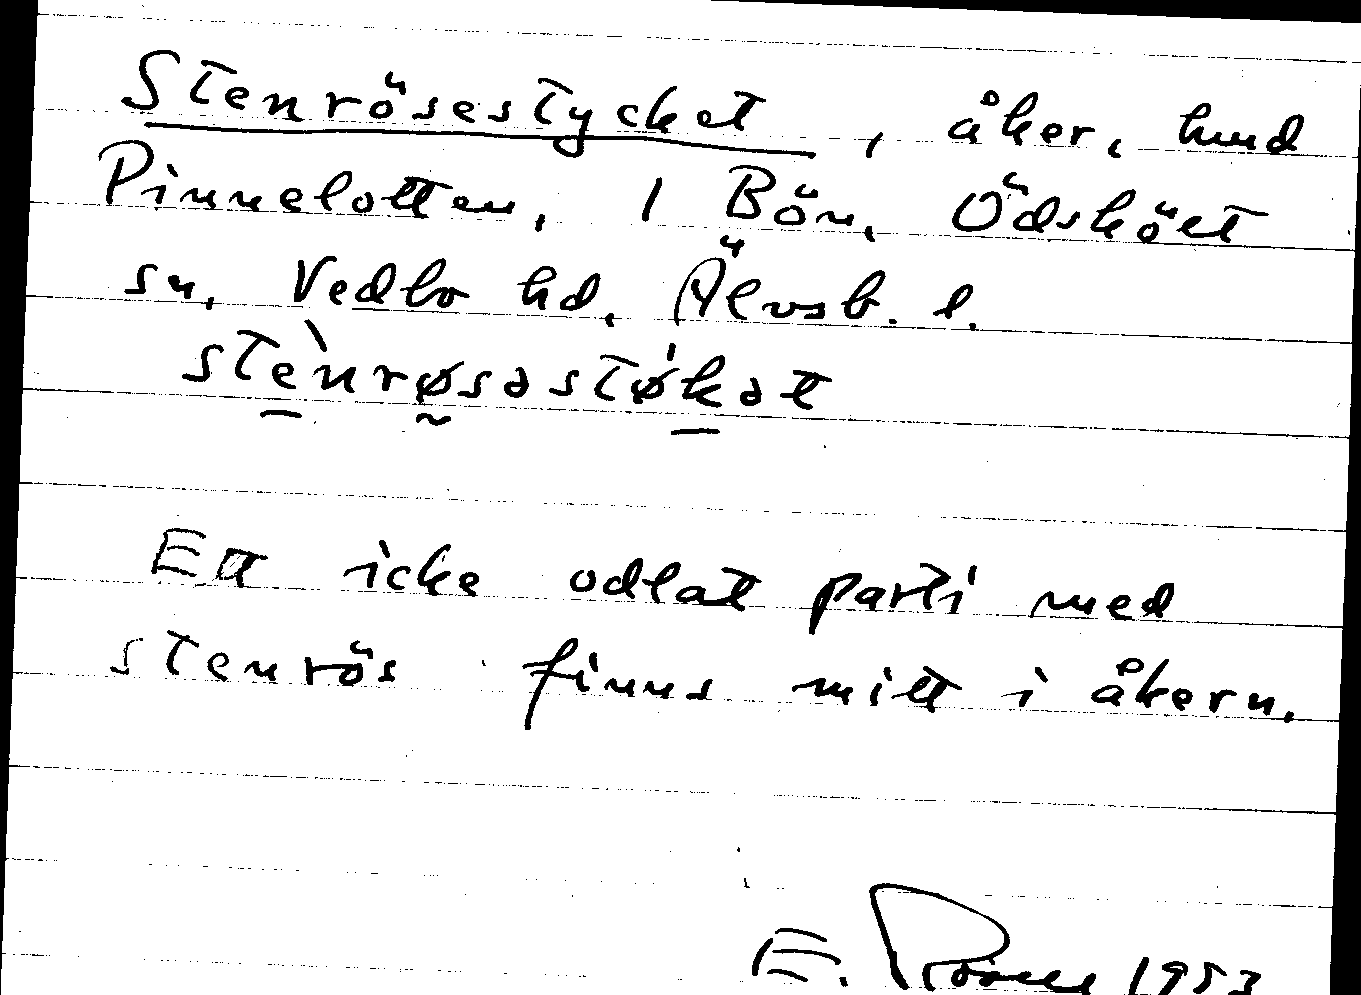 Stenrösestycket, åker, hmd
Pinnelotten, 1 Bön, Ödsköet
sn, Vedbo hd, Älvsb. l.
stènrøsəstǿkət
Ett icke odlat parti med
stenrös finns mitt i åkern.
E. 1953